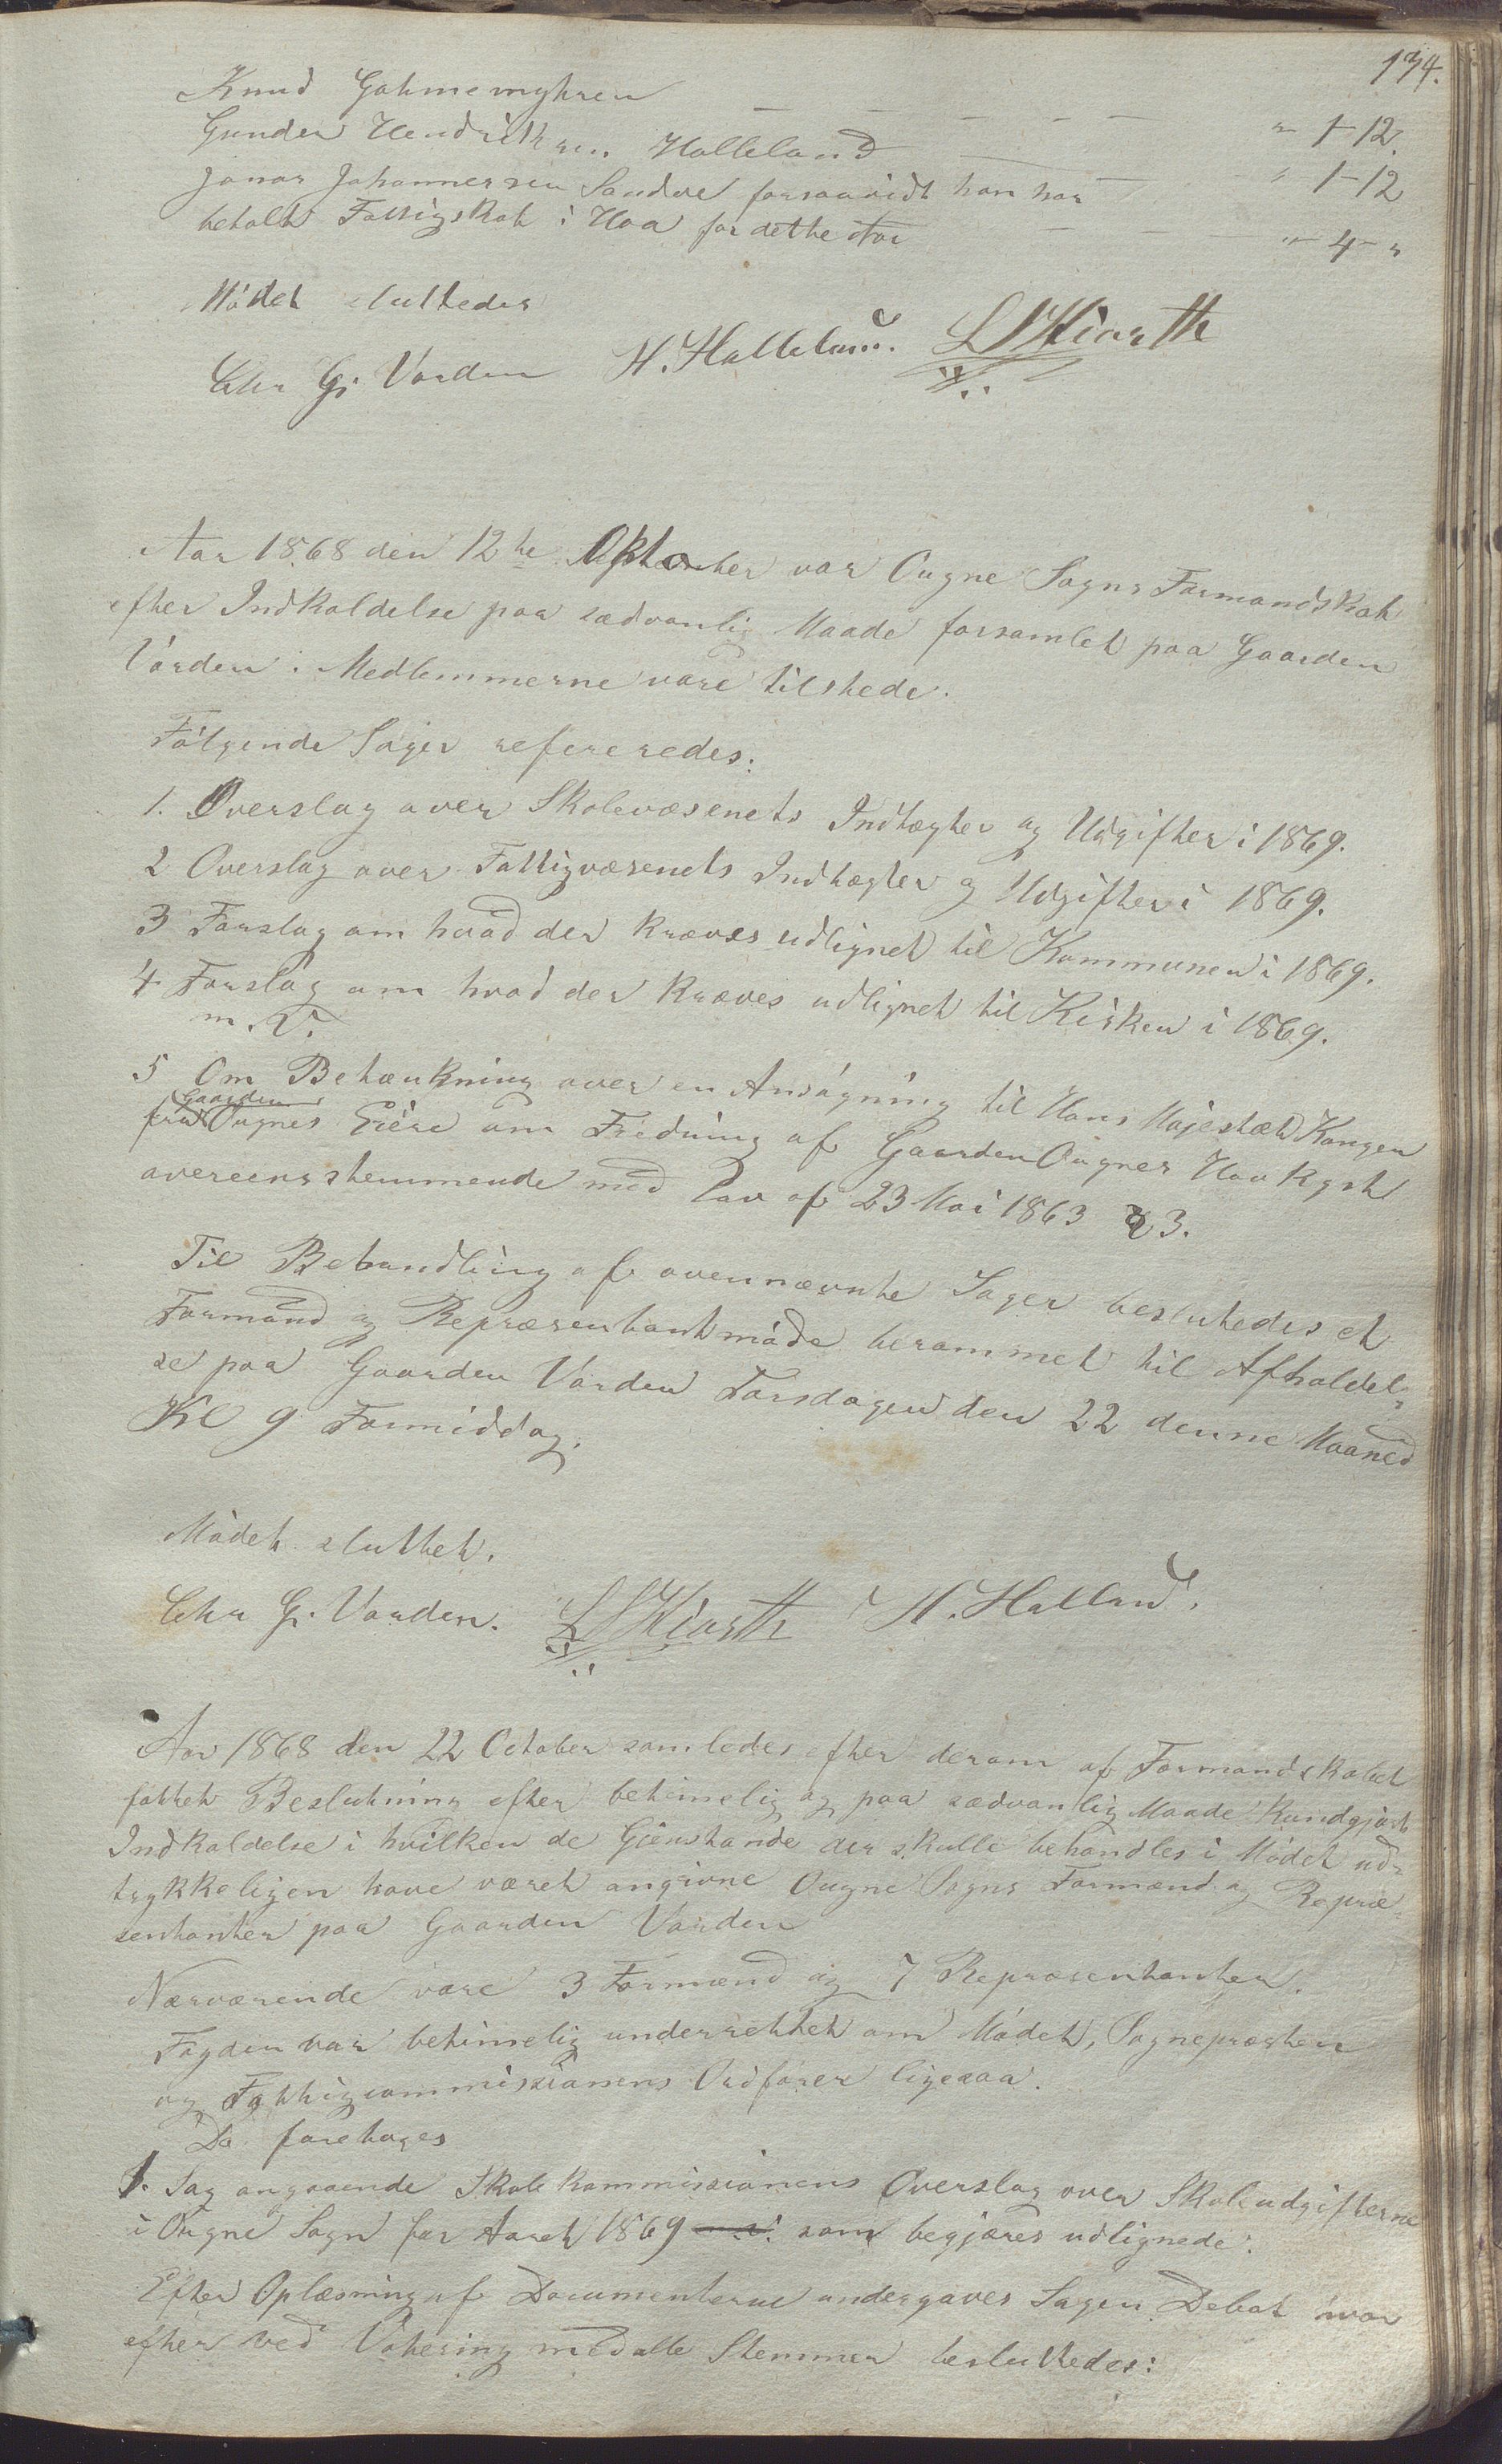 134.
Knud Gahmemyhren — — — — — " 1 - 12.
Gunder Hendriksen Halleland — — — " 1 - 12
Jonas Johannessen Sandve forsaavidt han har
betalt Fattigskat i Haa for dette Aar — — — " 4 - "
Mødet sluttedes
Chr G. Varden H. Halleland. LSKiarth
Aar 1868 den 12te Oktober var Ougne Sogns Formandskab
efter Indkaldelse paa sædvanlig Maade forsamlet paa Gaarden
Varden. Medlemmerne vare tilstede.
Følgende Sager refereredes:
1. Overslag over Skolevæsenets Indtægter og Udgifter i 1869.
2 Overslag over Fattigvæsenets Indtægter og Udgifter i 1869.
3 Forslag om hvad der kræves udlignet til Kommunen i 1869.
4. Forslag om hvad der kræves udlignet til Kirken i 1869.
m. V.
5 Om Betænkning over en Ansøgning til Hans Majestæt Kongen
fra Gaarden Ougnes Eiere om Fredning af Gaarden Ougnes Havkyst
overeensstemmende med Lov af 23 Mai 1863 § 3.
Til Behandling af ovennævnte Sager besluttedes et
Formand og Repræsentantmøde berammet til Afholdel-
se paa Gaarden Varden Torsdagen den 22 denne Maaned
Kl 9 Formiddag.
Mødet sluttet.
Chr G. Varden. LSKiarth H. Halland.
Aar 1868 den 22 October samledes efter derom af Formandskabet
fattet Beslutning efter betimelig og paa sædvanlig Maade kundgjort
Indkaldelse i hvilken de Gjenstande der skulle behandles i Mødet ud-
trykkeligen have været angivne Ougne Sogns Formænd og Repræ-
sentanter paa Gaarden Varden
Nærværende vare 3 Formænd og 7 Repræsentanter.
Fogden var betimelig underrettet om Mødet, Sognepræsten
og Fattigcommissionens Ordfører ligesaa.
Da foretoges
1. Sag angaaende Skolekommissionens Overslag over Skoleudgifterne
i Ougne Sogn for Aaret 1869 som begjæres udlignede.
Efter Oplæsning af Documenterne undergaves Sagen Debat hvor
efter ved Votering med alle Stemmer besluttedes: